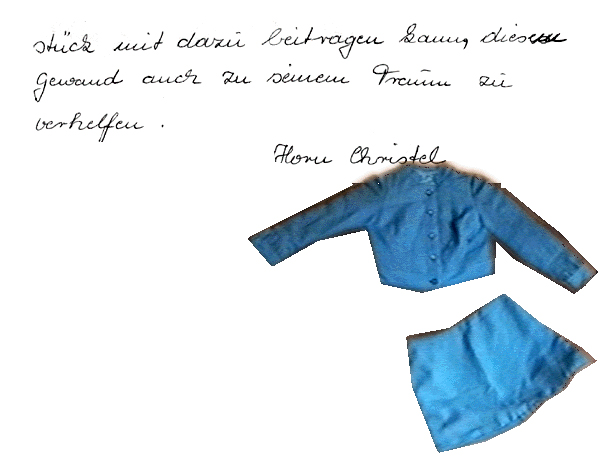 stück mit dazu beitragen kann, diesem
Gewand auch zu seinem Traum zu
verhelfen.
Horn Christel